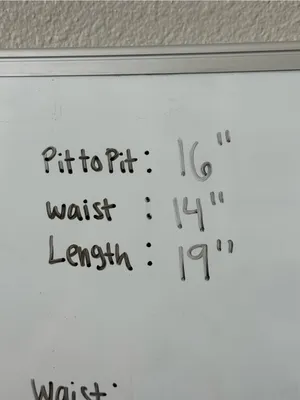 Pit to Pit: 16"
waist : 14"
Length: 19"
Waist: